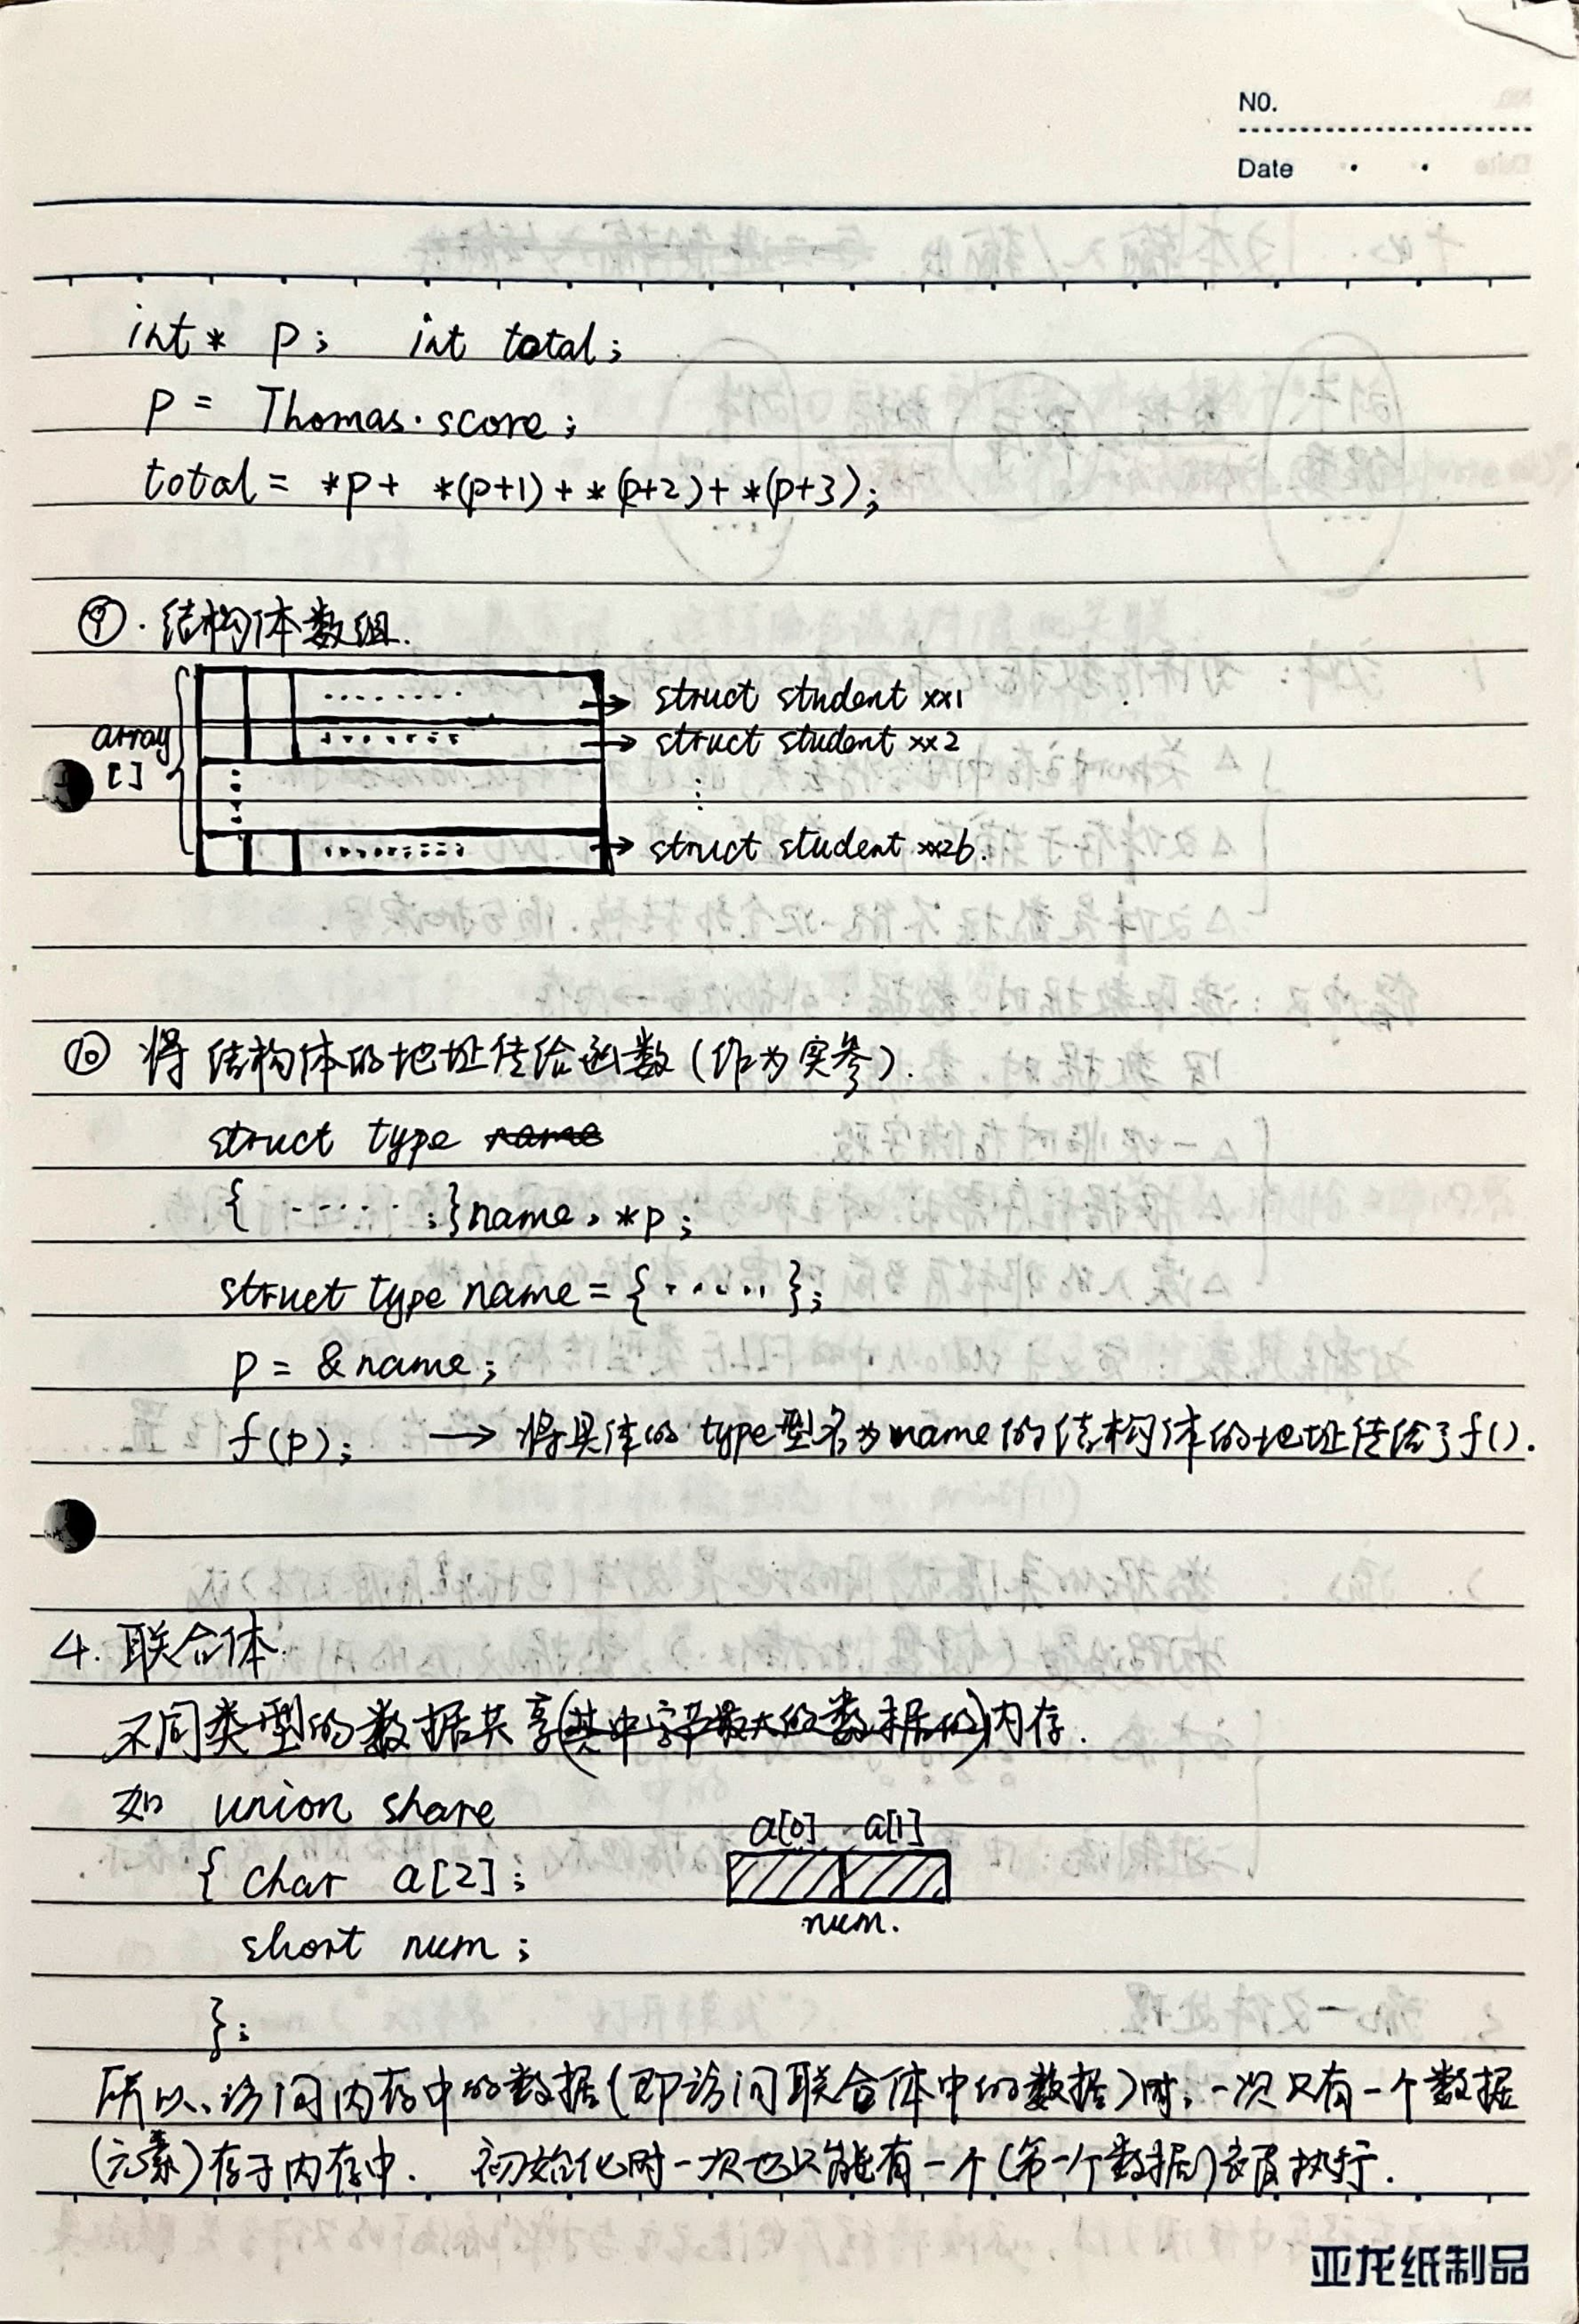 NO.
Date
int* p; int total;
p = Thomas.score;
total = *p + *(p+1) + *(p+2) + *(p+3);
⑨. 结构体数组.
array
[]
struct student xx1
struct student xx2
struct student xx26.
⑩ 将结构体的地址传给函数(作为实参).
struct type name
{ ······;}name, *p;
struct type name = {·····};
p = &name;
f(p); → 将具体的type型名为name的结构体的地址传给了f().
4. 联合体
不同类型的数据共享(其中字节最大的数据的)内存.
如 union share
a[0] a[1]
{ char a[2];
num.
short num;
};
所以,访问内存中的数据(即访问联合体中的数据)时,一次只有一个数据
(元素)存于内存中. 初始化时一次也只能有一个(第一个数据)被执行.
亚龙纸制品